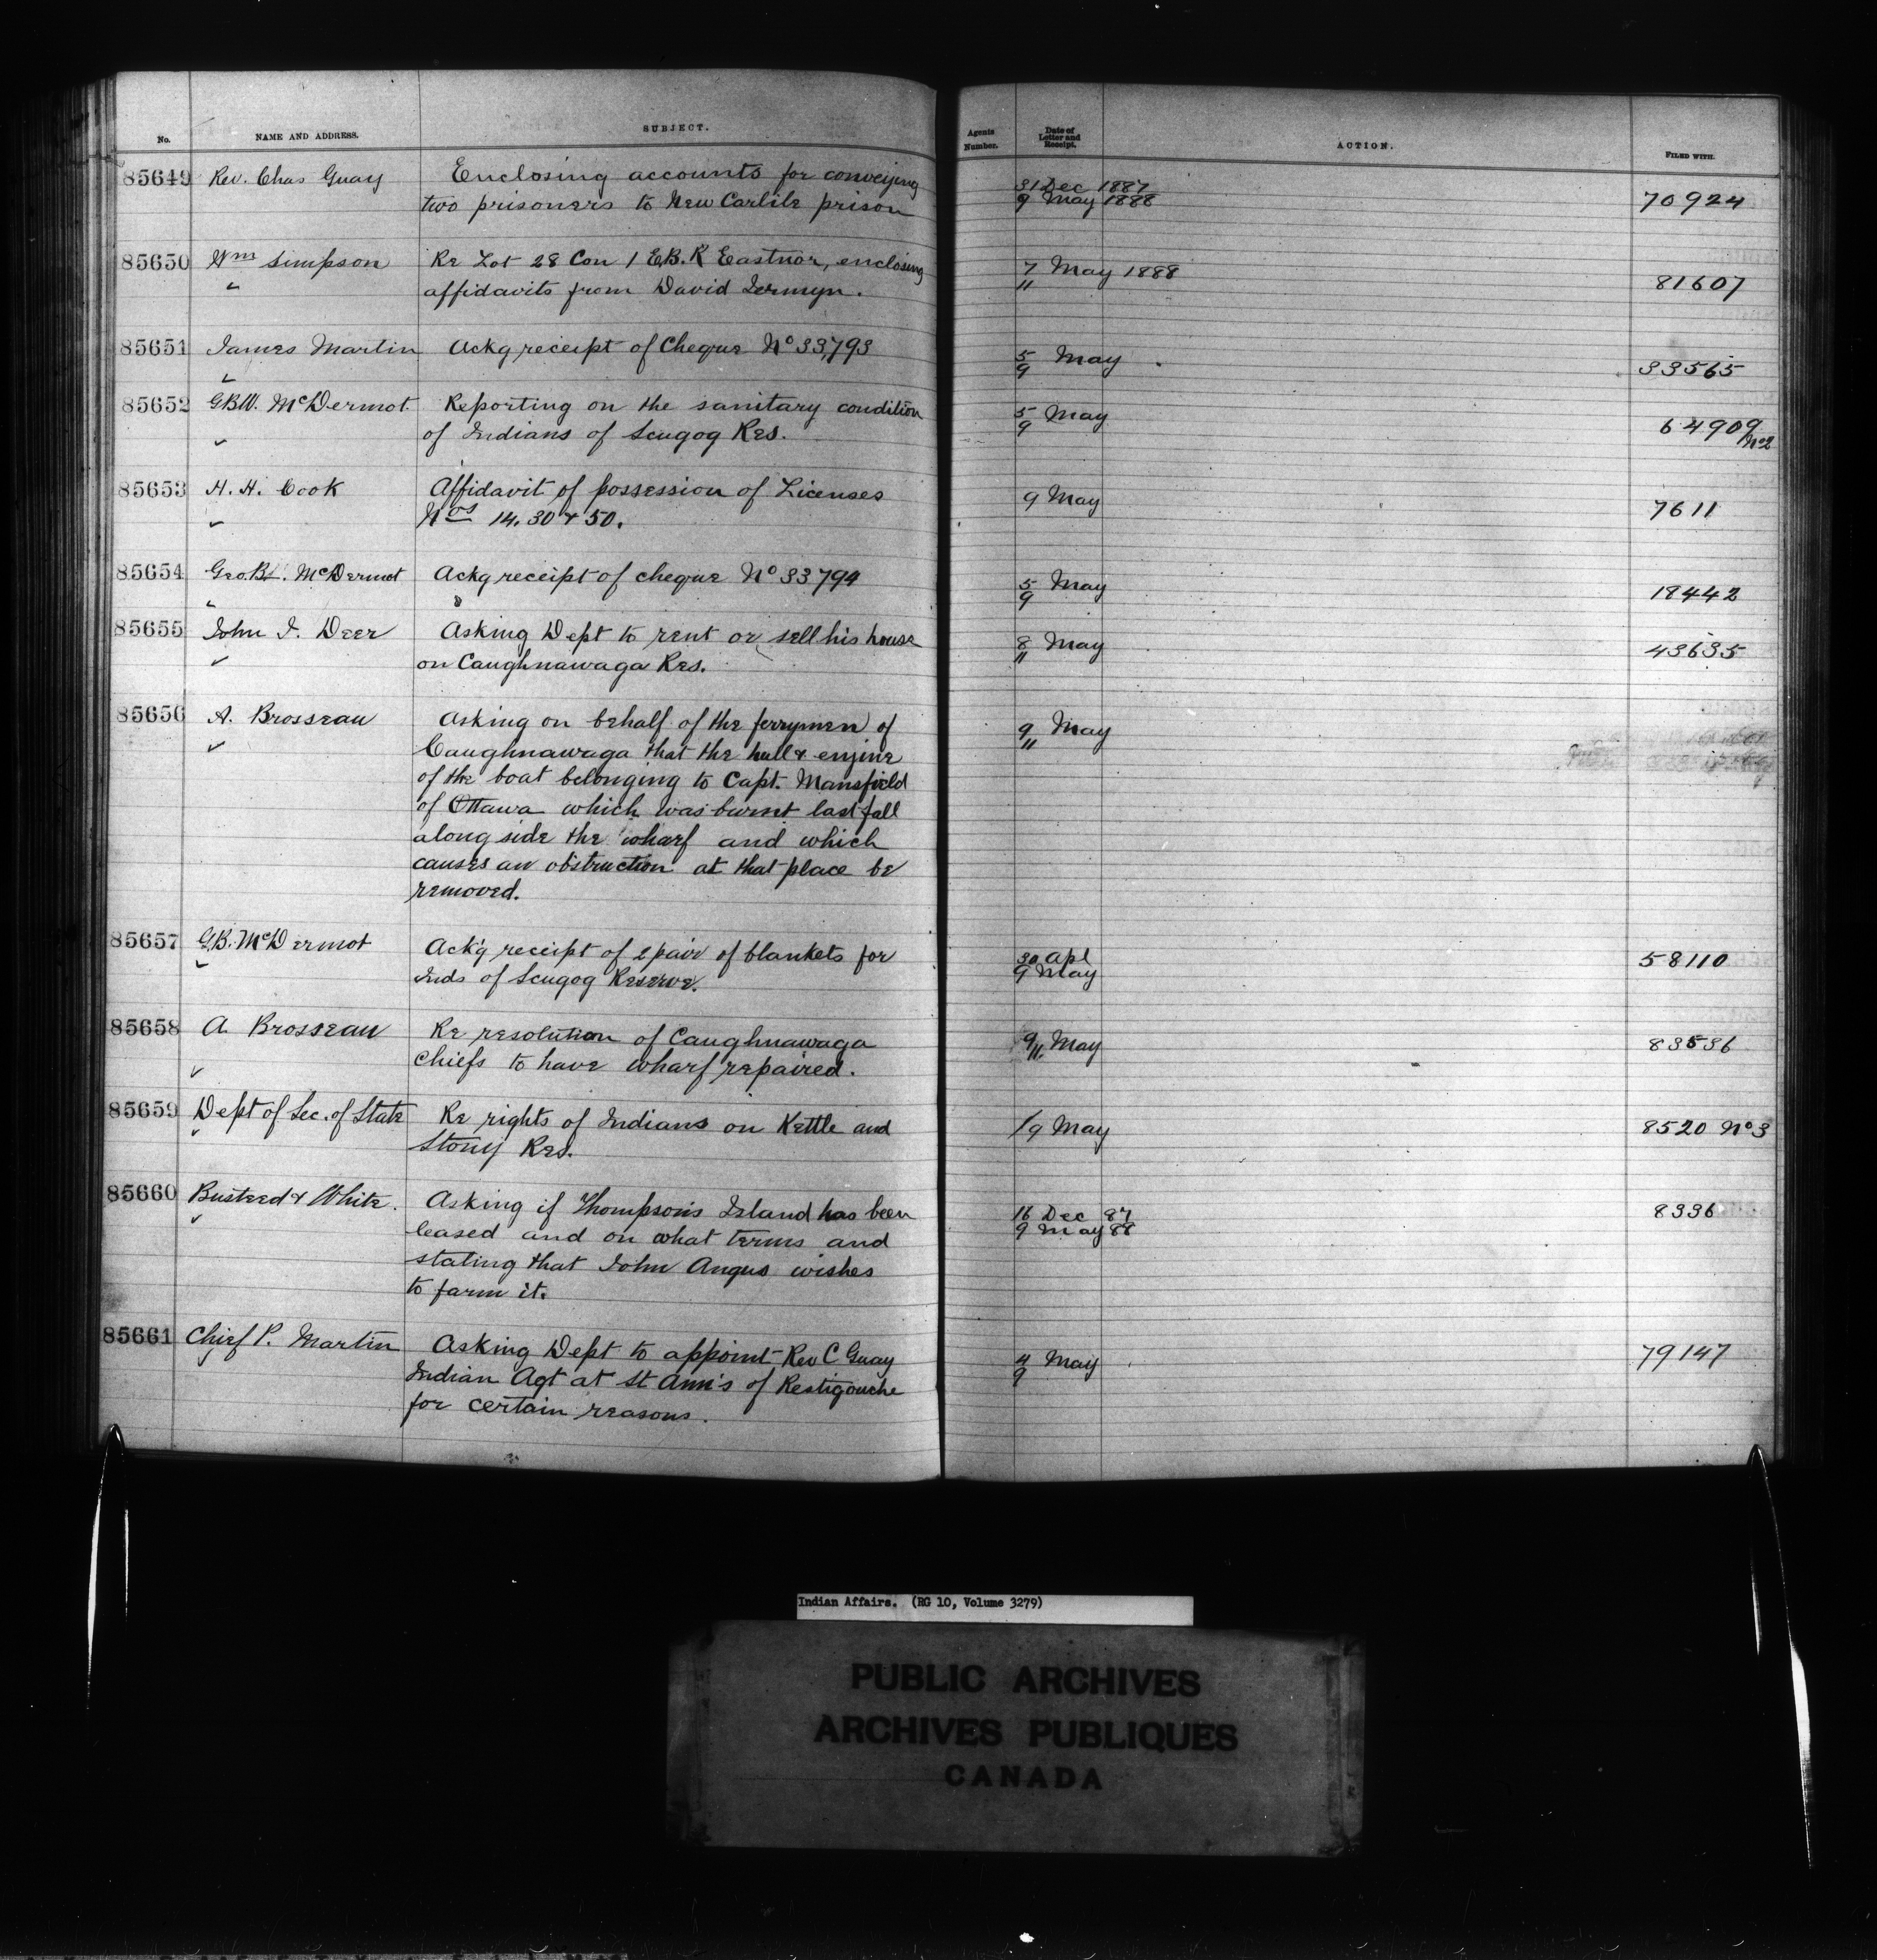 No. NAME AND ADDRESS. SUBJECT. Agents Number. Date of Letter and Receipt. ACTION. FILED WITH.
85649 Rev. Chas Guay Enclosing accounts for conveying 31 Dec 1887 70924
two prisoners to New Carlile prison 9 May 1888
85650 Wm Simpson Re Lot 28 Con 1 E.B.R Eastnor, enclosing 7 May 1888 81607
affidavits from David Jermyn. 11
85651 James Martin Ackg receipt of Cheque No 33,793 5 May 33565
9
85652 G.B.W. McDermot. Reporting on the sanitary condition 5 May 64909
of Indians of Scugog Res. 9 No2
85653 H. H. Cook Affidavit of possession of Licenses 9 May 7611
Nos 14. 30 & 50.
85654 Geo. McDermot Ackg receipt of cheque No 33794 5 May 18442
9
85655 John I. Deer Asking Dept to rent or sell his house 8 May 43635
on Caughnawaga Res. 11
85656 A. Brosseau Asking on behalf of the ferrymen of 9 May
Caughnawaga that the hull & engine 11
of the boat belonging to Capt. Mansfield
of Ottawa which was burnt last fall
along side the wharf and which
causes an obstruction at that place be
removed.
85657 G.B. McDermot Ack'g receipt of 2 pair of blankets for 30 Apl 58110
Inds of Scugog Reserve. 9 May
85658 A. Brosseau Re resolution of Caughnawaga 9/11. May 83536
Chiefs to have wharf repaired.
85659 Dept of Sec. of State Re rights of Indians on Kettle and /9 May 8520 No3
Stony Res.
85660 Busteed & White. Asking if Thompson's Island has been 16 Dec 87 8336
leased and on what terms and 9 May 88
stating that John Angus wishes
to farm it.
85661 Chief P. Martin Asking Dept to appoint Rev C Guay 4 May 79147
Indian Agt at St Ann's of Restigouche 9
for certain reasons.
Indian Affairs. (RG 10, Volume 3279)
PUBLIC ARCHIVES
ARCHIVES PUBLIQUES
CANADA